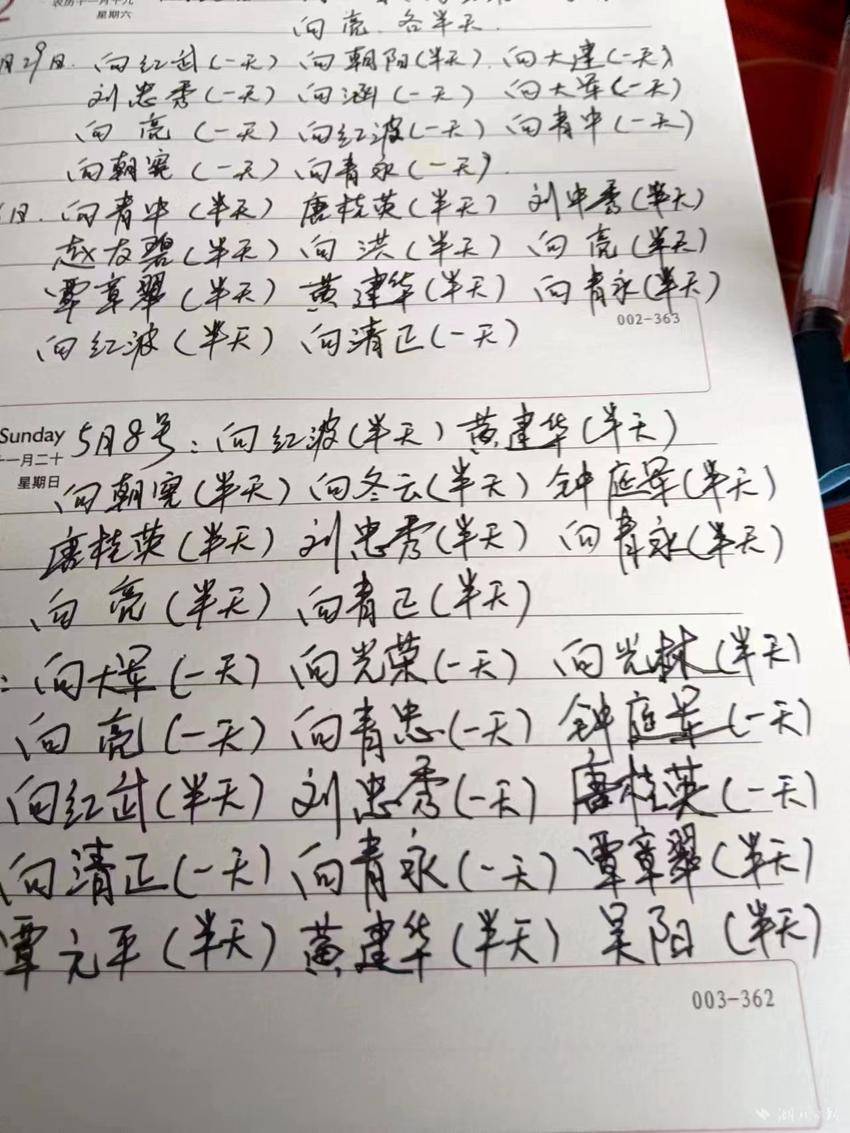 农历十一月十九
星期六
向亮 各半天
月29日. 向红武(一天) 向朝阳(半天). 向大建(一天)
刘忠秀(一天) 向涵(一天) 向大军(一天)
向亮(一天) 向红波(一天) 向青中(一天)
向朝宽(一天) 向青永(一天).
日. 向青中(半天) 唐桂英(半天) 刘中秀(半天)
赵友碧(半天) 向洪(半天) 向亮(半天)
覃章翠(半天) 黄建华(半天) 向青永(半天)
向红波(半天) 向清正(一天)
002-363
Sunday 5月8号: 向红波(半天) 黄建华(半天)
十一月二十
星期日
向朝宽(半天) 向冬云(半天) 钟庭军(半天)
唐桂英(半天) 刘忠秀(半天) 向青永(半天)
向亮(半天) 向青正(半天)
: 向大军(一天) 向光荣(一天) 向光林(半天)
向亮(一天) 向青忠(一天) 钟庭军(一天)
向红武(半天) 刘忠秀(一天) 唐桂英(一天)
向清正(一天) 向青永(一天) 覃章翠(半天)
覃元平(半天) 黄建华(半天) 吴阳(半天)
003-362